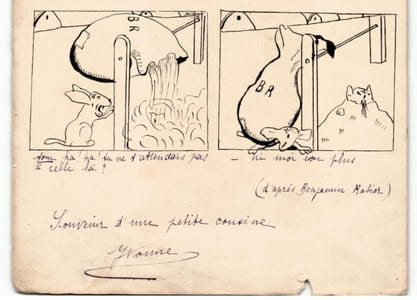 BR
BR
Tom ha! ha! tu ne t'attendais pas
à celle là ?
_ Ni moi non plus
(d'après Benjamin Rabier)
Souvenir d'une petite cousine
Yvonne